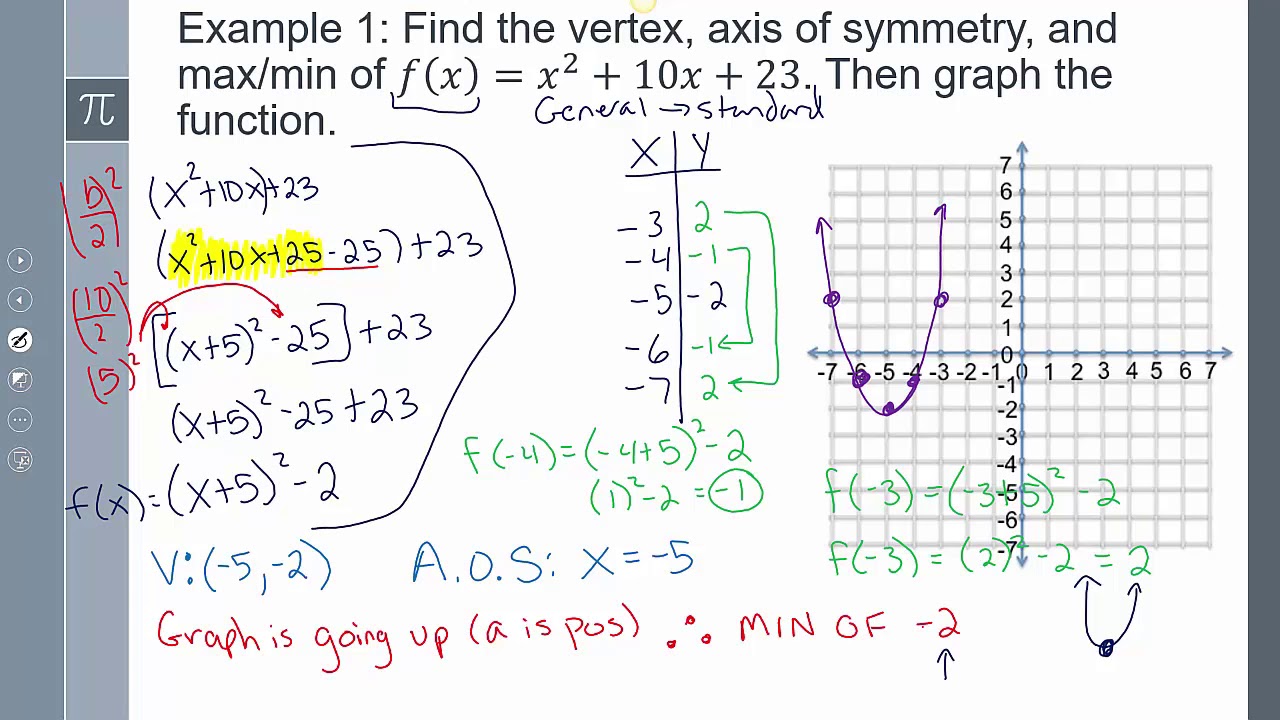 Example 1: Find the vertex, axis of symmetry, and
max/min of f(x) = x² + 10x + 23. Then graph the
function.
General → standard
π
(b/2)²
(10/2)²
(5)²
(x²+10x)+23
(x²+10x+25-25)+23
[(x+5)²-25]+23
(x+5)²-25+23
f(x)=(x+5)²-2
X Y
-3 2
-4 -1
-5 -2
-6 -1
-7 2
f(-4)=(-4+5)²-2
(1)²-2=-1
7
6
5
4
3
2
1
0
-7 -6 -5 -4 -3 -2 -1 0 1 2 3 4 5 6 7
-1
-2
-3
-4
-5
-6
-7
f(-3)=(-3+5)²-2
f(-3)=(2)²-2=2
V:(-5,-2) A.O.S: X=-5
Graph is going up (a is pos) ∴ MIN OF -2